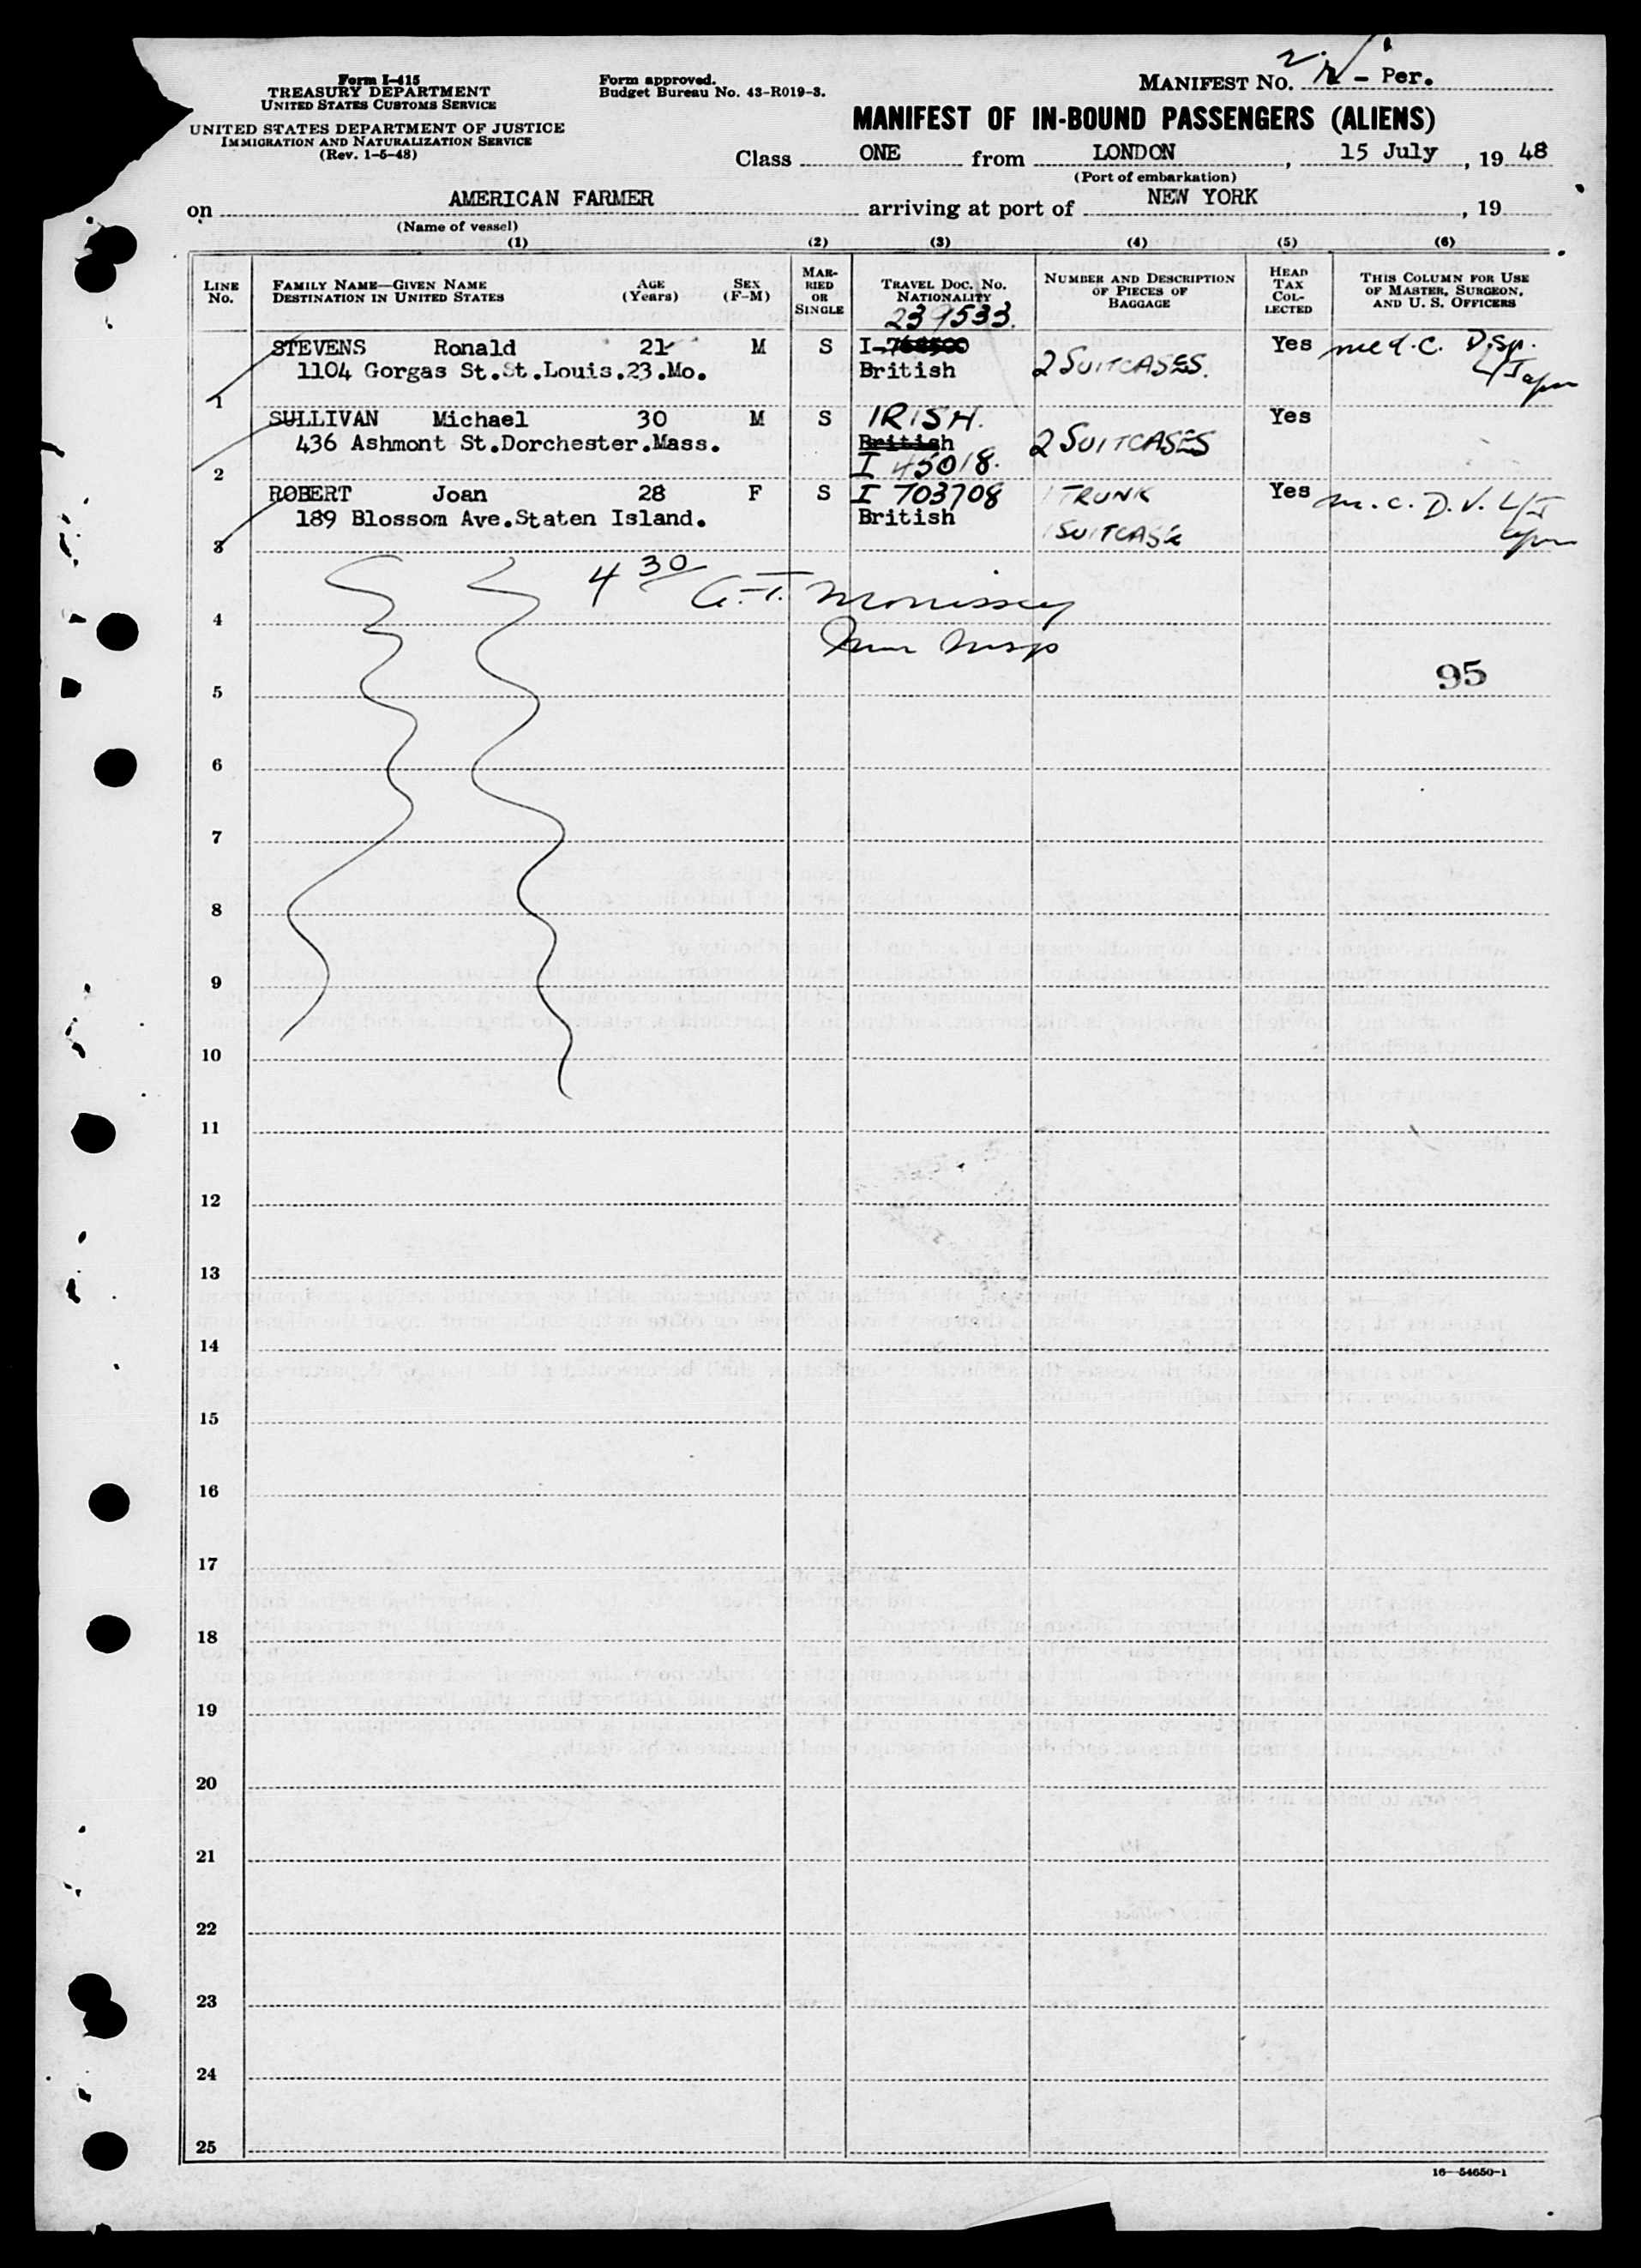 Form I-415
TREASURY DEPARTMENT
UNITED STATES CUSTOMS SERVICE
UNITED STATES DEPARTMENT OF JUSTICE
IMMIGRATION AND NATURALIZATION SERVICE
(Rev. 1-5-48)
Form approved.
Budget Bureau No. 43-R019-3.
MANIFEST NO. 2 - Per.
MANIFEST OF IN-BOUND PASSENGERS (ALIENS)
Class ONE from LONDON, 15 July, 19 48
(Port of embarkation)
on AMERICAN FARMER arriving at port of NEW YORK, 19
(Name of vessel)
(1) (2) (3) (4) (5) (6)
LINE No.
FAMILY NAME—GIVEN NAME
DESTINATION IN UNITED STATES
AGE (Years)
SEX (F-M)
MARRIED OR SINGLE
TRAVEL DOC. NO.
NATIONALITY
NUMBER AND DESCRIPTION OF PIECES OF BAGGAGE
HEAD TAX COLLECTED
THIS COLUMN FOR USE OF MASTER, SURGEON, AND U. S. OFFICERS
239533.
STEVENS Ronald 21 M S I- Yes med. C. Disp.
1104 Gorgas St.St.Louis.23.Mo. British 2 SUITCASES.
1
SULLIVAN Michael 30 M S IRISH. Yes
436 Ashmont St.Dorchester.Mass. British 2 SUITCASES
2 I 45018.
ROBERT Joan 28 F S I 703708 1 TRUNK Yes m. C. D. V. L/I
189 Blossom Ave.Staten Island. British 1 SUITCASE
3
4 30 G. T. Morrissey
4
Imm Insp
95
5
6
7
8
9
10
11
12
13
14
15
16
17
18
19
20
21
22
23
24
25
16—54650-1